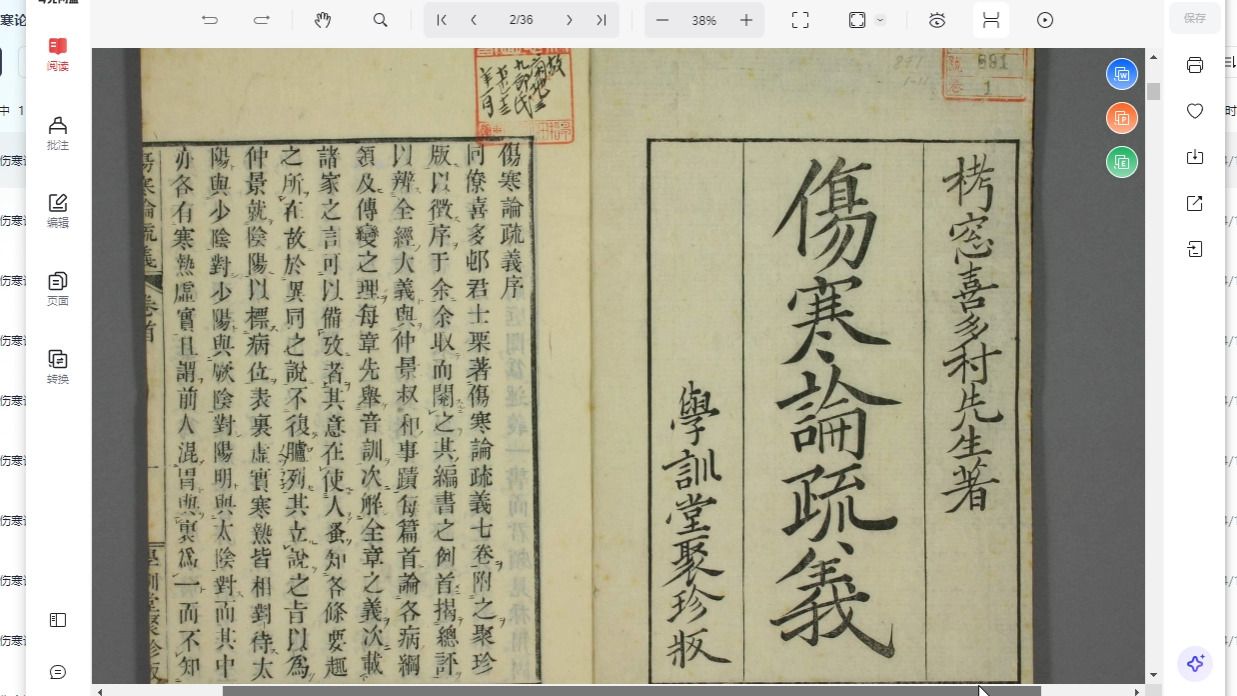 2/36
38%
保存
阅读
批注
编辑
页面
转换
栲窓喜多村先生著
傷寒論疏義
學訓堂聚珍版
891
1
傷寒論疏義序
同僚喜多邨君士栗著傷寒論疏義七卷附之聚珍
版以徵序于余余取而閱之其編書之例首揭總評
以辨全經大義與仲景叔和事蹟每篇首論各病綱
領及傳變之理每章先舉音訓次解全章之義次載
諸家之言可以備攷者其意在使人蚤知各條要趣
之所在故於異同之說不復臚列其立說之旨以爲
仲景就陰陽以標病位表裏虛實寒熱皆相對待太
陽與少陰對少陽與厥陰對陽明與太陰對而其中
亦各有寒熱虛實且謂前人混胃與裏爲一而不知
傷寒論疏義 卷首 一 學訓堂聚珍版